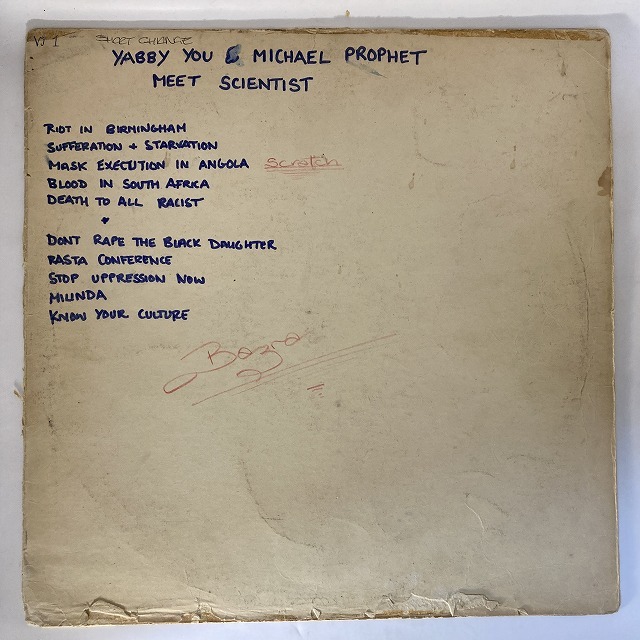 VS 1 SHORT CHANGE
YABBY YOU & MICHAEL PROPHET
MEET SCIENTIST
RIOT IN BIRMINGHAM
SUFFERATION + STARVATION
MASK EXECUTION IN ANGOLA scratch
BLOOD IN SOUTH AFRICA
DEATH TO ALL RACIST
+
DONT RAPE THE BLACK DAUGHTER
RASTA CONFERENCE
STOP UPPRESSION NOW
MILINDA
KNOW YOUR CULTURE